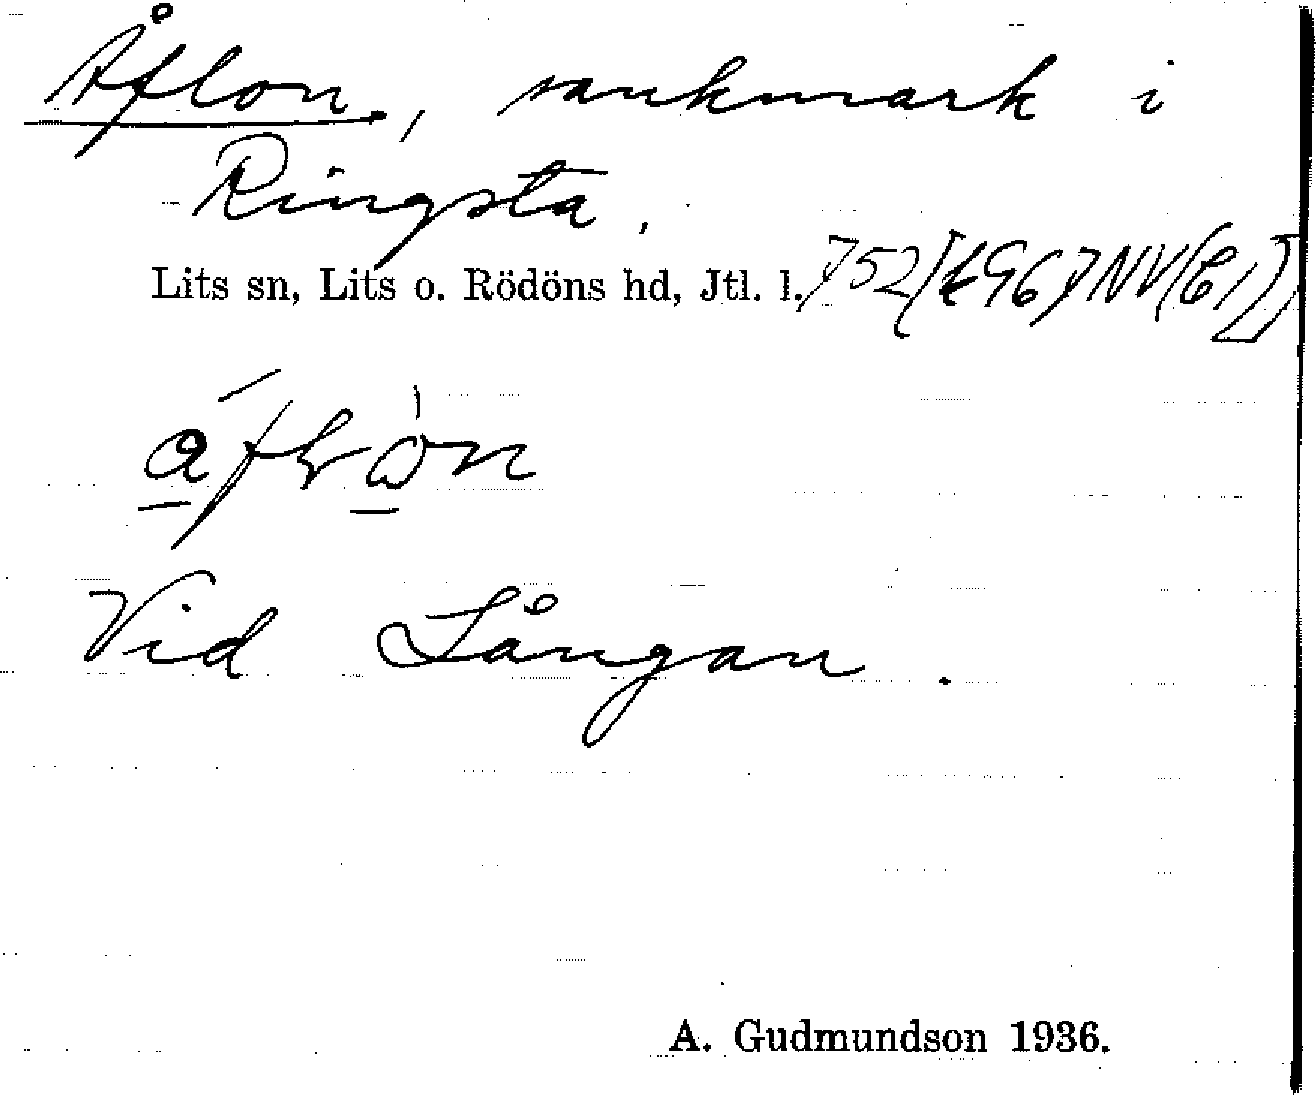 Åflon, sankmark i
Ringsta.
Lits sn, Lits o. Rödöns hd, Jtl. l.
Vid Långan.
A. Gudmundson 1936.